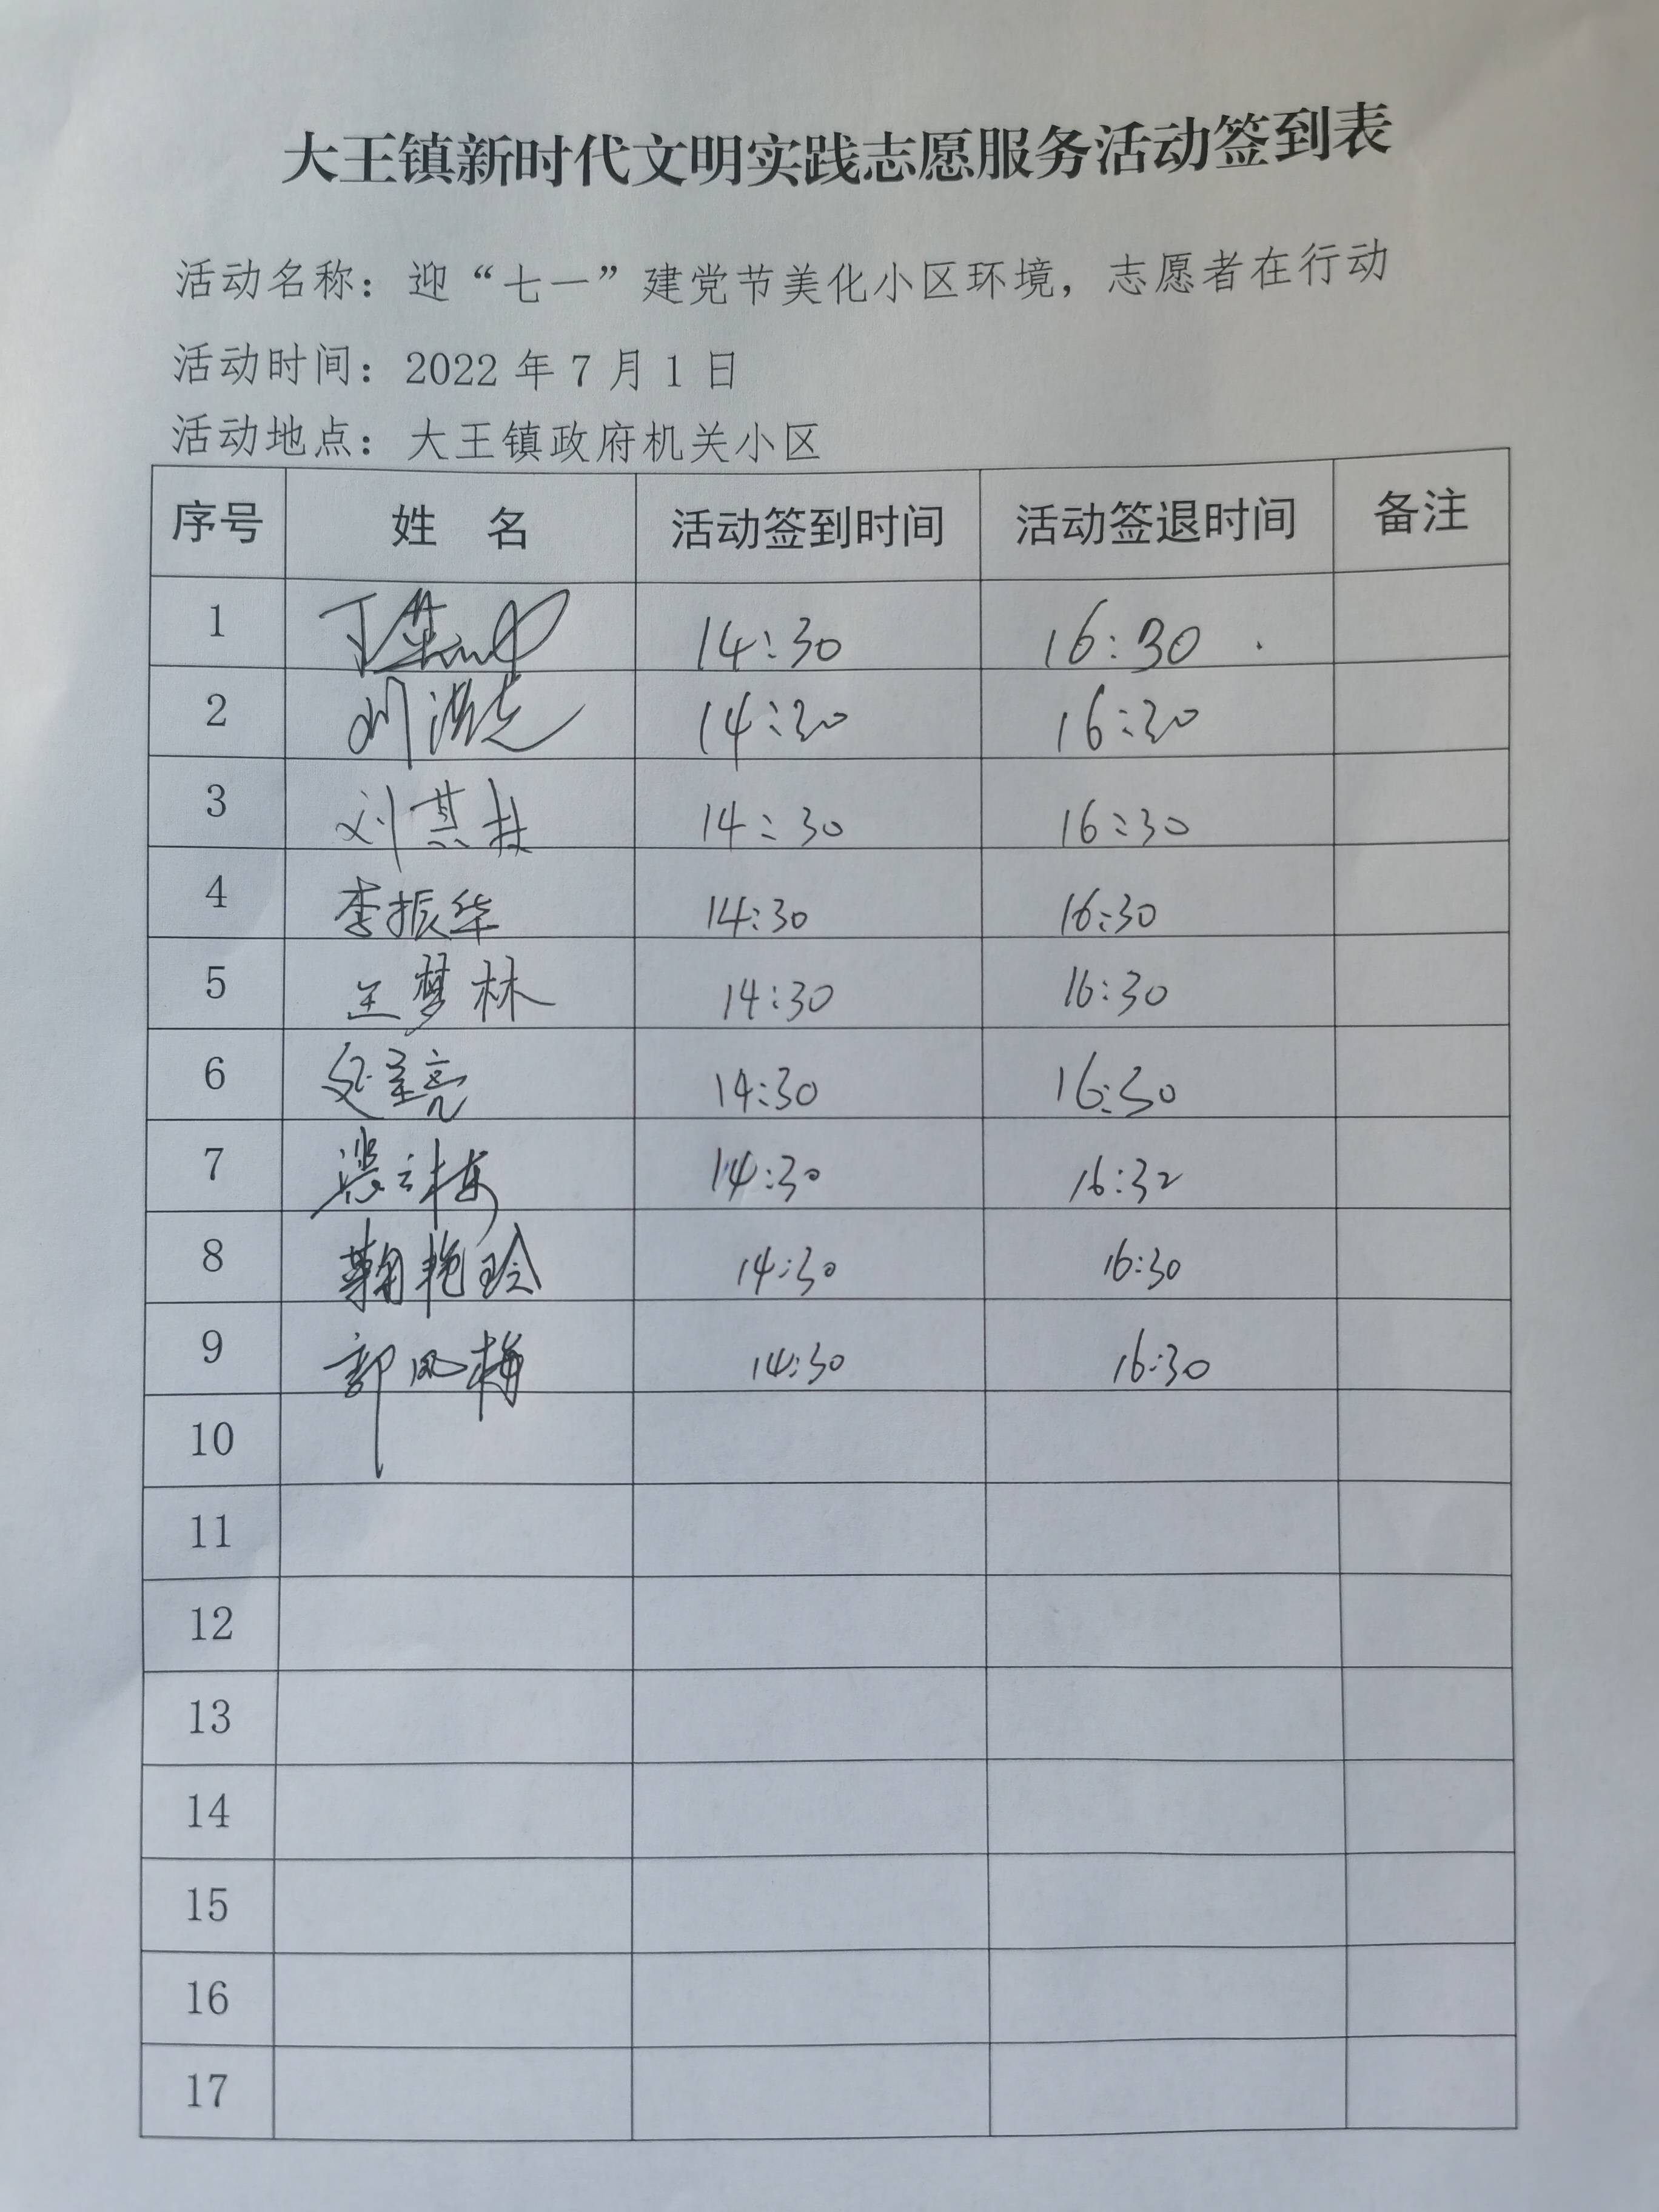 大王镇新时代文明实践志愿服务活动签到表
活动名称：迎“七一”建党节美化小区环境，志愿者在行动
活动时间：2022 年 7 月 1 日
活动地点：大王镇政府机关小区
序号 姓 名 活动签到时间 活动签退时间 备注
1 14:30 16:30
2 14:30 16:30
3 刘其 14:30 16:30
4 李振华 14:30 16:30
5 王梦林 14:30 16:30
6 亮 14:30 16:30
7 14:30 16:32
8 艳玲 14:30 16:30
9 郭凤梅 14:30 16:30
10
11
12
13
14
15
16
17